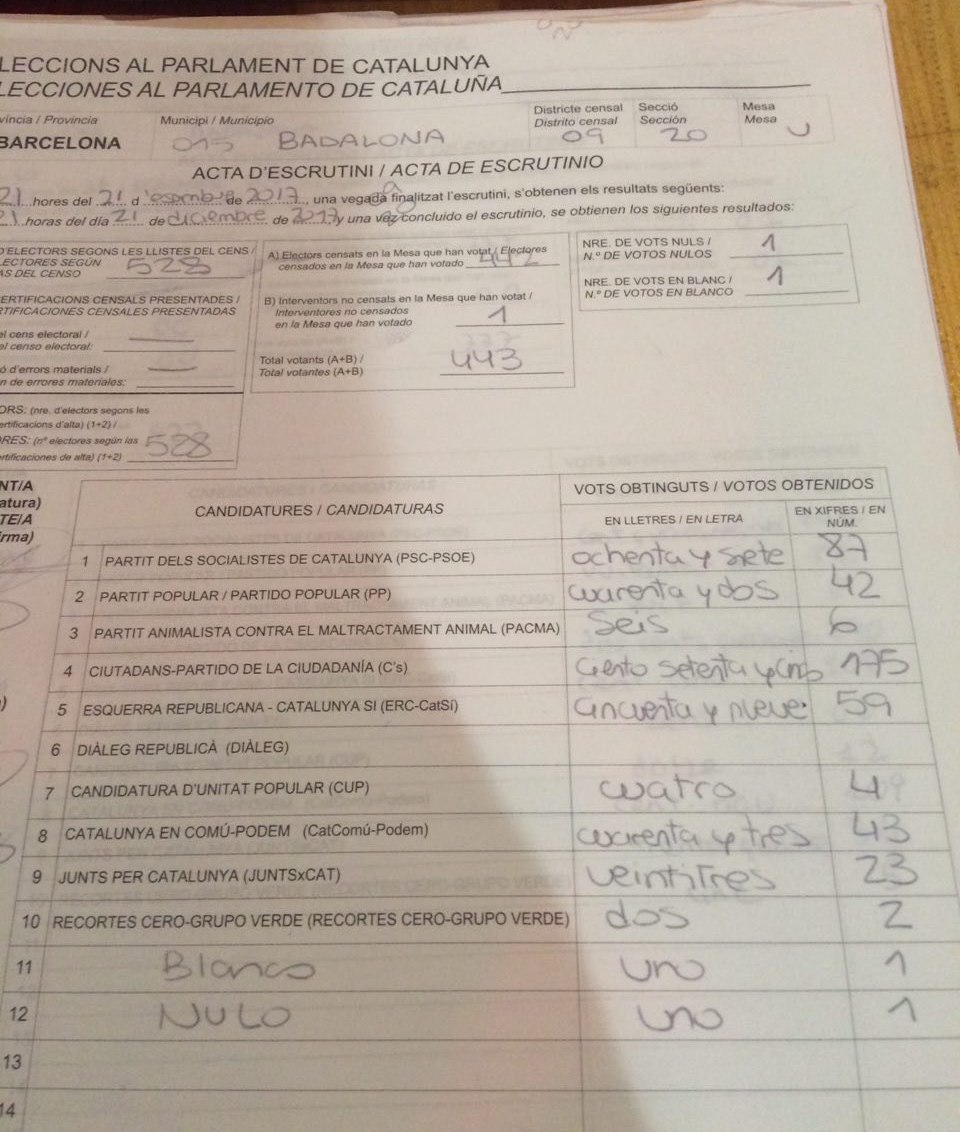 LECCIONS AL PARLAMENT DE CATALUNYA
LECCIONES AL PARLAMENTO DE CATALUÑA
víncia / Provincia
BARCELONA
Municipi / Municipio
015 BADALONA
Districte censal
Distrito censal
09
Secció
Sección
20
Mesa
Mesa
U
ACTA D'ESCRUTINI / ACTA DE ESCRUTINIO
21 hores del 21 d de 2017, una vegada finalitzat l'escrutini, s'obtenen els resultats següents:
21 horas del día 21 de diciembre de 2017 y una vez concluido el escrutinio, se obtienen los siguientes resultados:
D'ELECTORS SEGONS LES LLISTES DEL CENS /
LECTORES SEGÚN
AS DEL CENSO
528
ERTIFICACIONS CENSALS PRESENTADES /
RTIFICACIONES CENSALES PRESENTADAS
el cens electoral /
el censo electoral:
ó d'errors materials /
n de errores materiales:
ORS: (nre. d'electors segons les
ertificacions d'alta) (1+2) /
RES: (nº electores según las
rtificaciones de alta) (1+2)
528
A) Electors censats en la Mesa que han votat / Electores
censados en la Mesa que han votado
442
B) Interventors no censats en la Mesa que han votat /
Interventores no censados
en la Mesa que han votado
1
Total votants (A+B) /
Total votantes (A+B)
443
NRE. DE VOTS NULS /
N.º DE VOTOS NULOS
1
NRE. DE VOTS EN BLANC /
N.º DE VOTOS EN BLANCO
1
NT/A
atura)
TE/A
irma)
CANDIDATURES / CANDIDATURAS
VOTS OBTINGUTS / VOTOS OBTENIDOS
EN LLETRES / EN LETRA
EN XIFRES / EN
NÚM.
1 PARTIT DELS SOCIALISTES DE CATALUNYA (PSC-PSOE) ochenta y siete 87
2 PARTIT POPULAR / PARTIDO POPULAR (PP) cuarenta y dos 42
3 PARTIT ANIMALISTA CONTRA EL MALTRACTAMENT ANIMAL (PACMA) seis 6
4 CIUTADANS-PARTIDO DE LA CIUDADANÍA (C's) ciento setenta y 175
5 ESQUERRA REPUBLICANA - CATALUNYA SI (ERC-CatSí) cincuenta y nueve 59
6 DIÀLEG REPUBLICÀ (DIÀLEG)
7 CANDIDATURA D'UNITAT POPULAR (CUP) cuatro 4
8 CATALUNYA EN COMÚ-PODEM (CatComú-Podem) cuarenta y tres 43
9 JUNTS PER CATALUNYA (JUNTSxCAT) veintitres 23
10 RECORTES CERO-GRUPO VERDE (RECORTES CERO-GRUPO VERDE) dos 2
11 Blanco uno 1
12 NULO uno 1
13
14